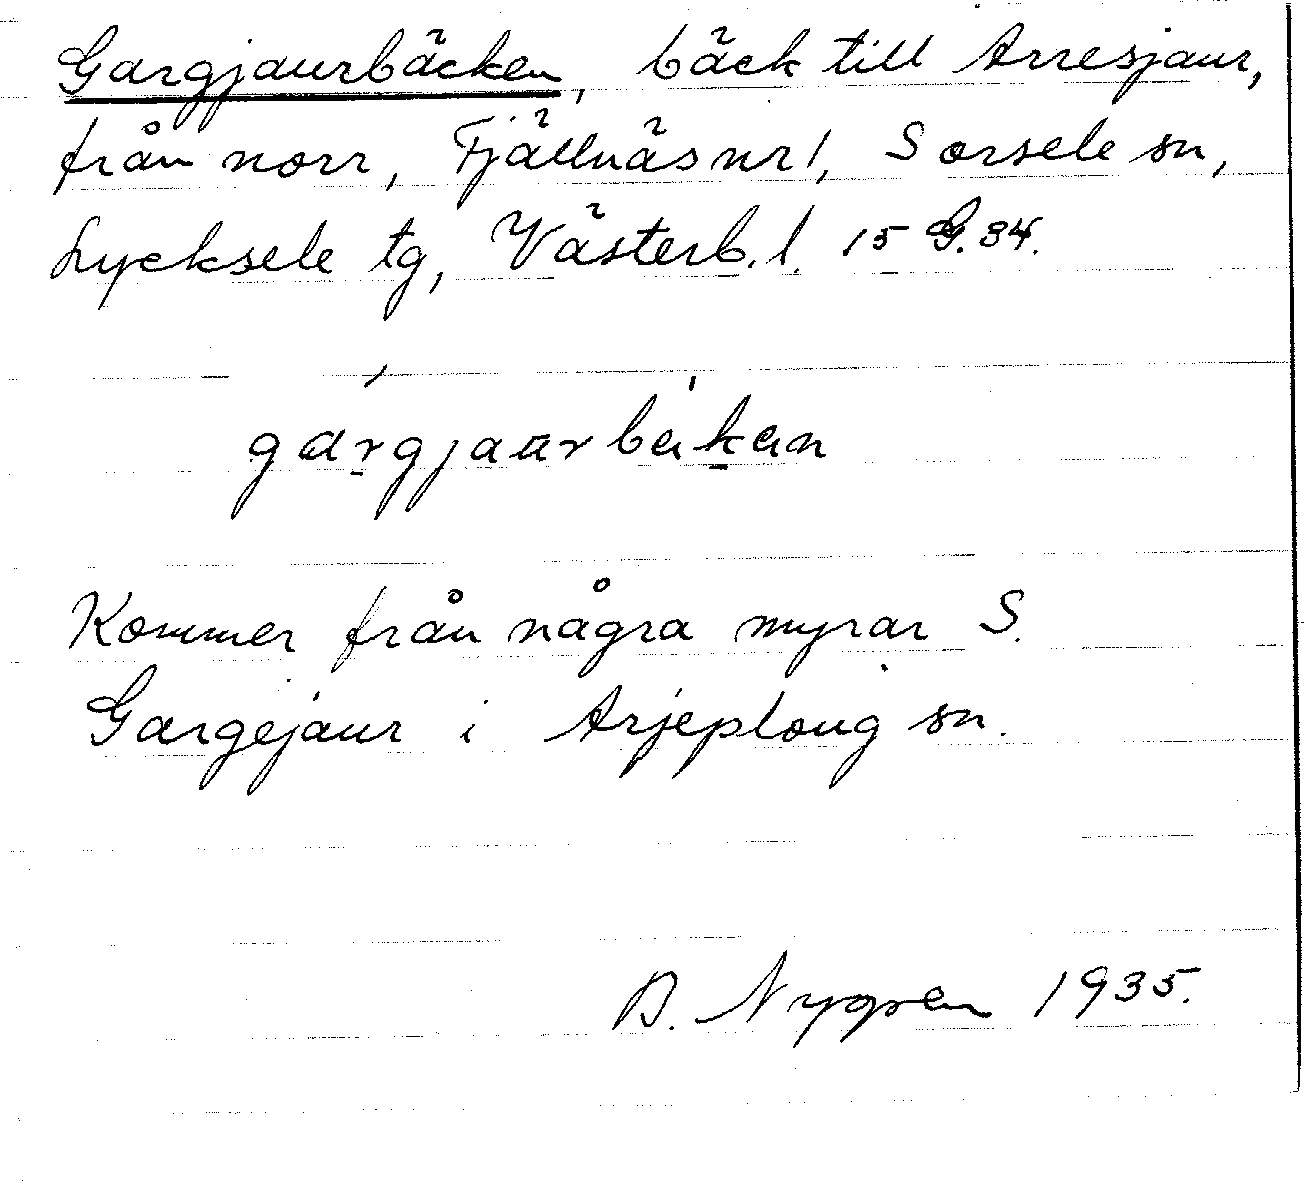 Gargjaurbäcken, bäck till Arresjaur,
från norr, Fjällnäs nr 1, Sorsele sn,
Lycksele tg, Västerb. l. 15 G. 34.
Kommer från några myrar S.
Gargejaur i Arjeploug sn.
B. Nygren 1935.